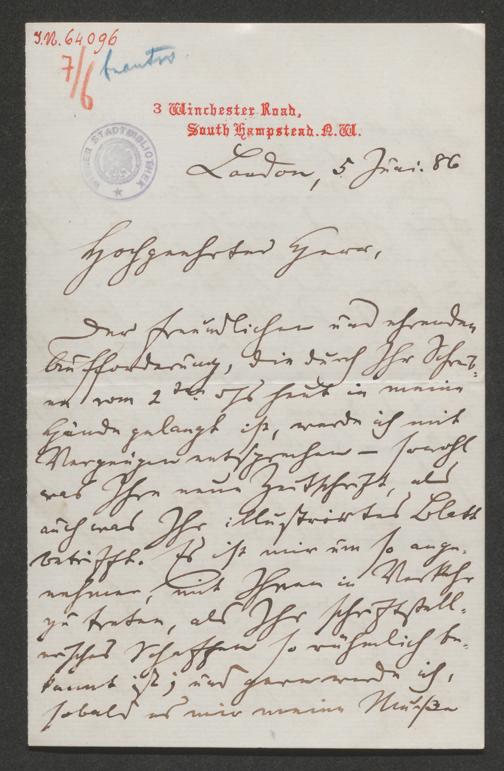 I.N. 64096
7/6 beantw.
WIENER STADTBIBLIOTHEK
3 Winchester Road,
South Hampstead. N.W.
London, 5. Juni. 86
Hochgeehrter Herr,
Der freundlichen und ehrenden
Aufforderung, die durch Ihr Schrei-
en vom 2ten ds heut in meine
Hände gelangt ist, werde ich mit
Vergnügen entsprechen – sowohl
was Ihre neue Zeitschrift, als
auch was Ihr illustrirtes Blatt
betrifft. Es ist mir um so ange-
nehmer, mit Ihnen in Verkehr
zu treten, als Ihr schriftstell-
erisches Schaffen so rühmlich be-
kannt ist; und gern werde ich,
sobald es mir meine Muße